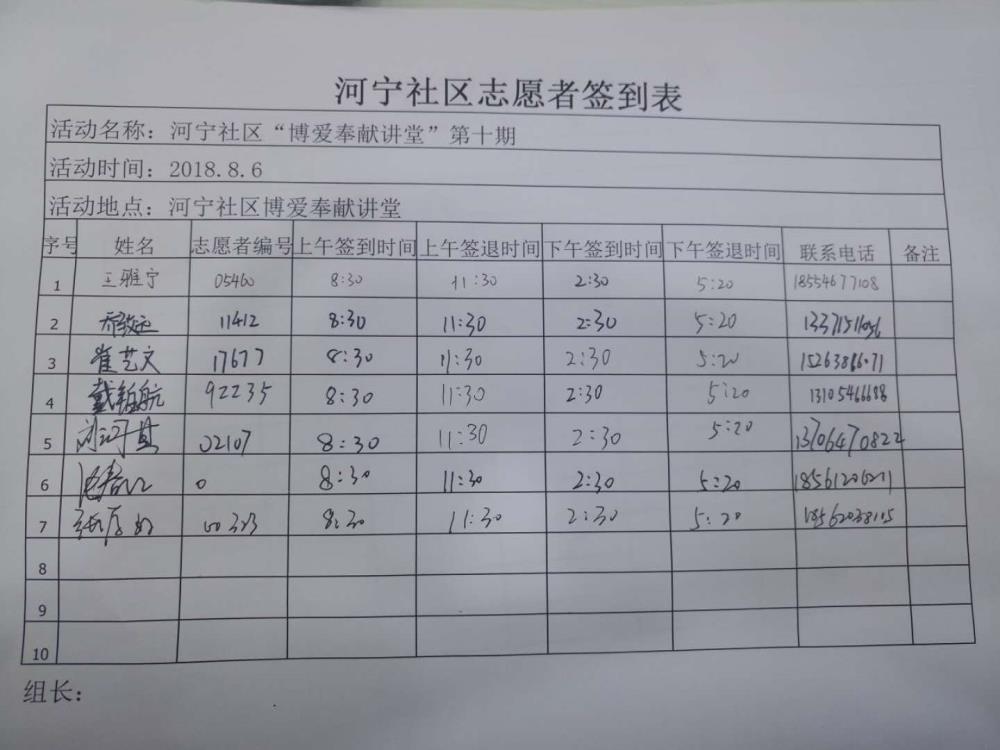 河宁社区志愿者签到表
活动名称：河宁社区“博爱奉献讲堂”第十期
活动时间：2018.8.6
活动地点：河宁社区博爱奉献讲堂
序号 姓名 志愿者编号 上午签到时间 上午签退时间 下午签到时间 下午签退时间 联系电话 备注
1 王雅宁 05460 8:30 11:30 2:30 5:20 18554677108
2 11412 8:30 11:30 2:30 5:20
3 崔艺文 17677 8:30 11:30 2:30 5:20
4 92235 8:30 11:30 2:30 5:20 13105466688
5 02107 8:30 11:30 2:30 5:20 13706470822
6 0 8:30 11:30 2:30 5:20
7 00323 8:30 11:30 2:30 5:20
8
9
10
组长：